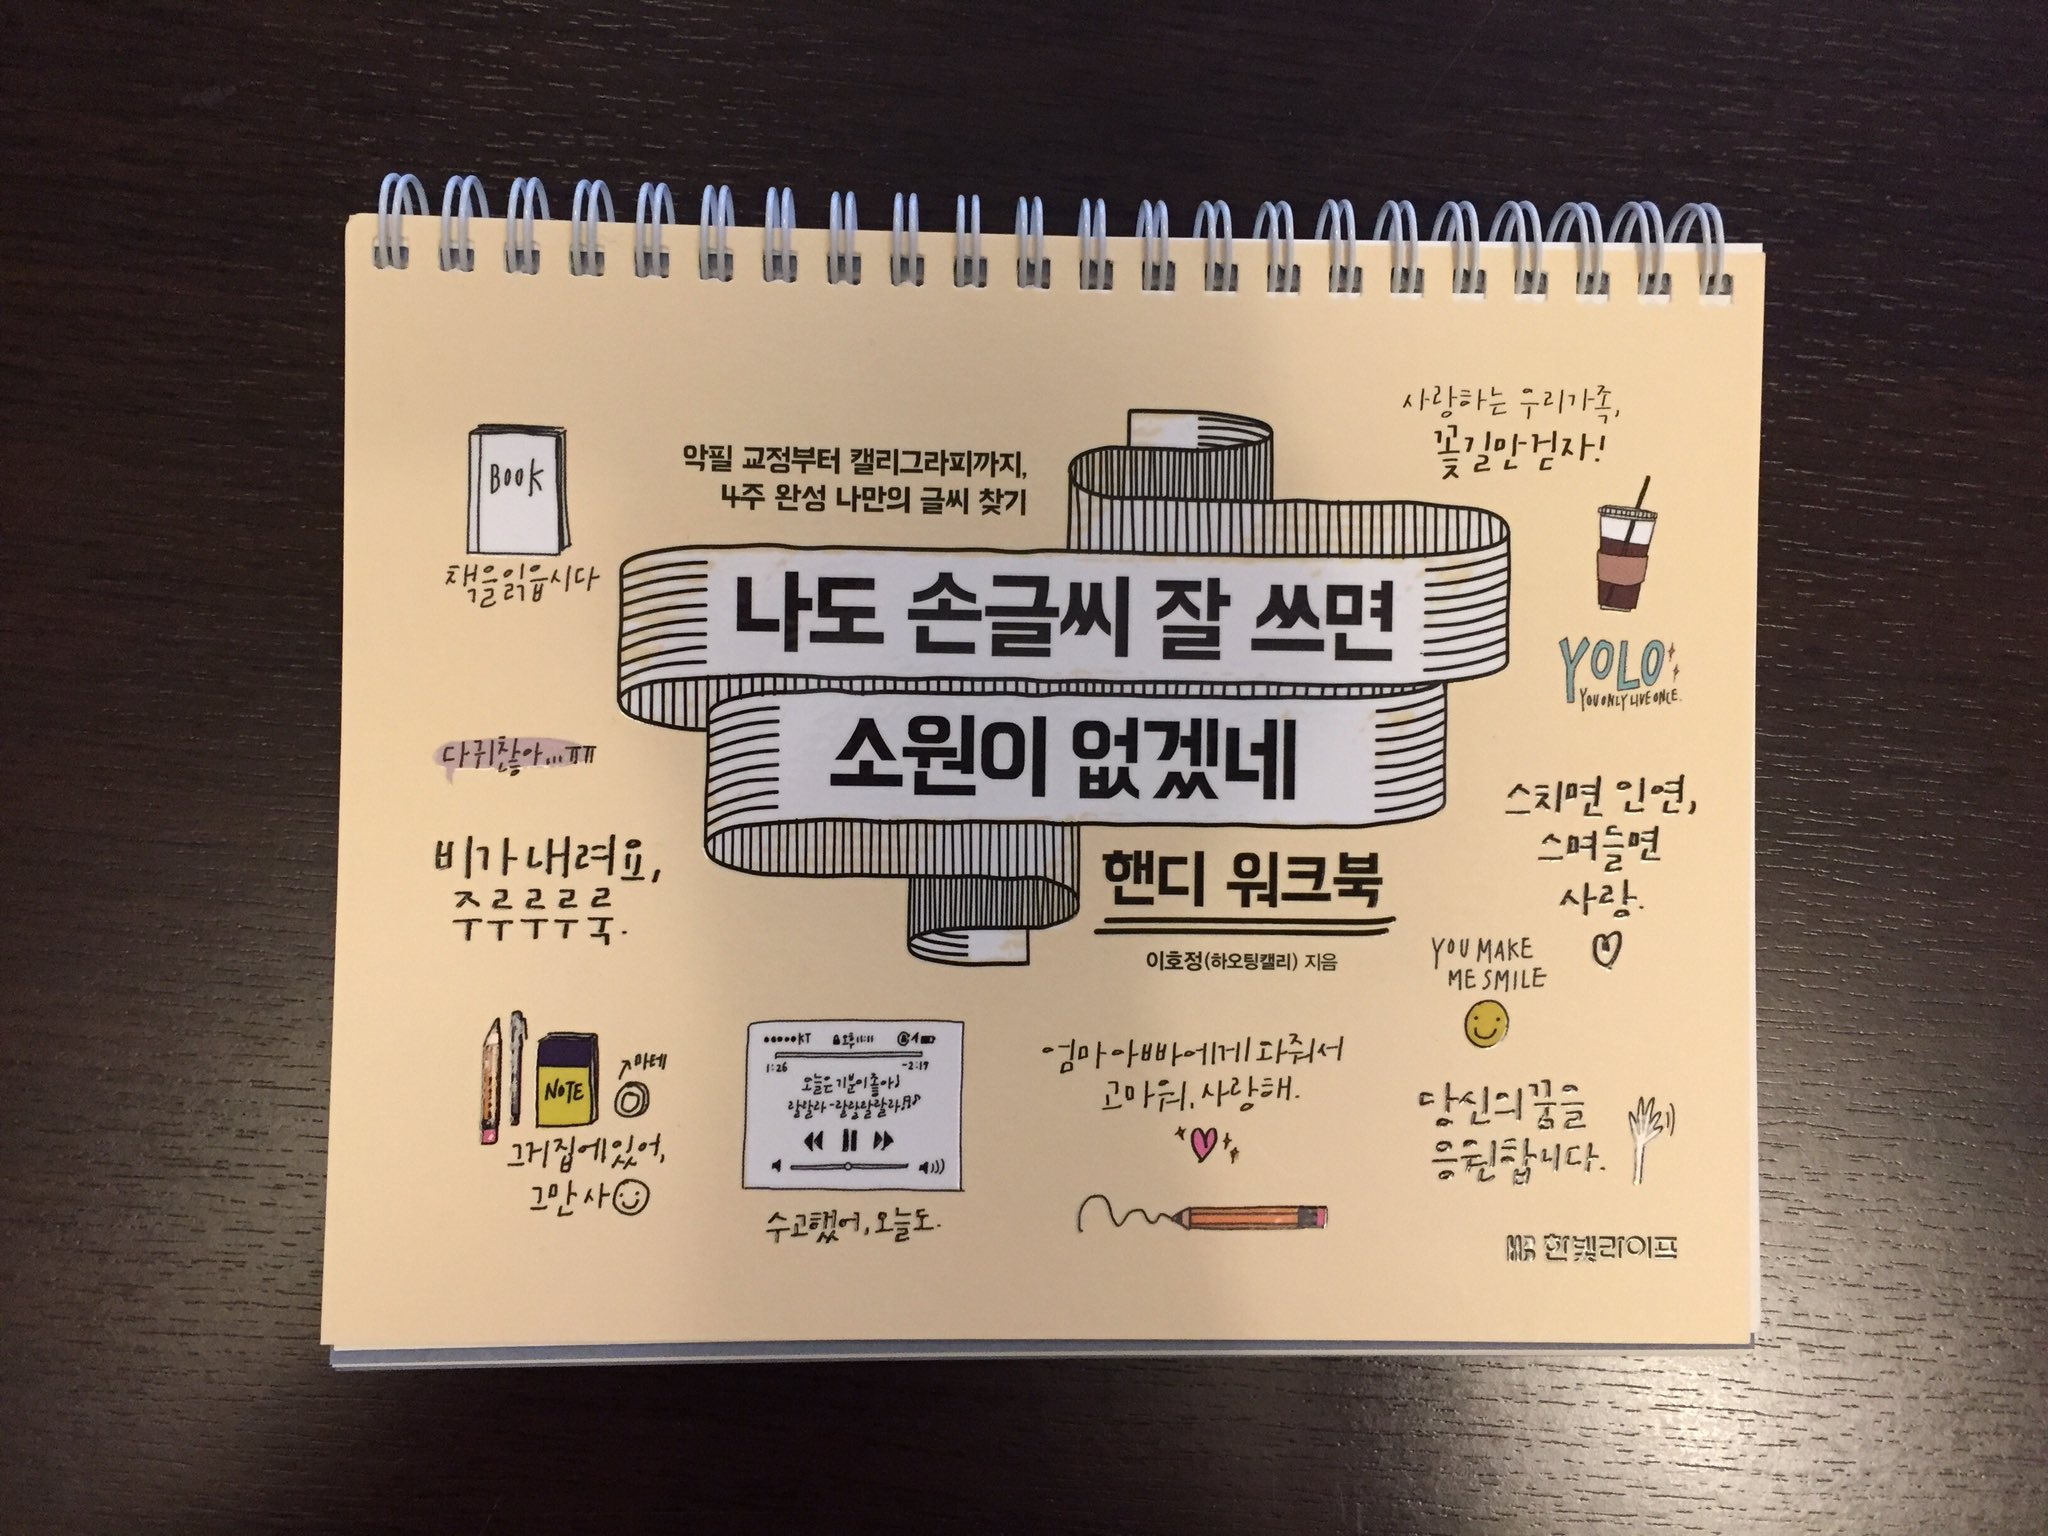 사랑하는 우리가족,
꽃길만 걷자!
악필 교정부터 캘리그라피까지,
4주 완성 나만의 글씨 찾기
BOOK
책을읽읍시다
나도 손글씨 잘 쓰면
소원이 없겠네
YOLO
YOU ONLY LIVE ONCE.
다귀찮아...ㅠㅠ
스치면 인연,
스며들면
사랑.
비가내려요,
주루루루룩.
핸디 워크북
이호정(하오팅캘리) 지음
YOU MAKE
ME SMILE
●●●●●KT 오후11:11
1:26 -2:19
오늘은기분이좋아♪
랄랄라-랄랄랄랄라♬♪
수고했어, 오늘도.
마테
NOTE
그거집에있어,
그만사
엄마아빠에게다줘서
고마워, 사랑해.
당신의꿈을
응원합니다.
HB 한빛라이프